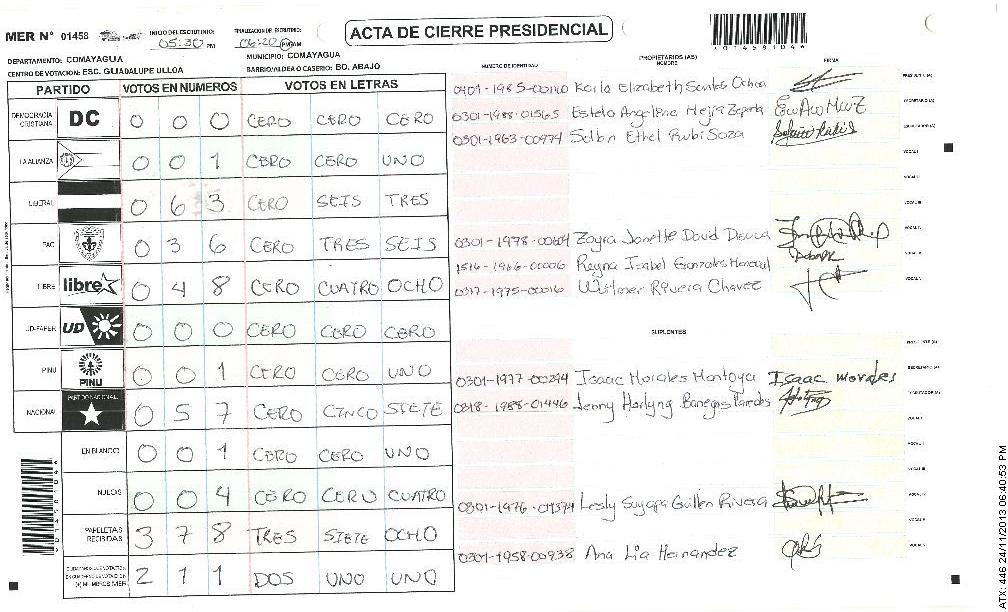 MER N° 01458
INICIO DEL ESCRUTINIO:
05:30 PM
FINALIZACION DEL ESCRUTINIO:
06:20 PM AM
ACTA DE CIERRE PRESIDENCIAL
DEPARTAMENTO: COMAYAGUA
MUNICIPIO: COMAYAGUA
CENTRO DE VOTACION: ESC. GUADALUPE ULLOA
BARRIO/ALDEA O CASERIO: BO. ABAJO
PARTIDO VOTOS EN NUMEROS VOTOS EN LETRAS
DEMOCRACIA CRISTIANA DC 0 0 0 CERO CERO CERO
LA ALIANZA 0 0 1 CERO CERO UNO
LIBERAL 0 6 3 CERO SEIS TRES
PAC 0 3 6 CERO TRES SEIS
LIBRE libre 0 4 8 CERO CUATRO OCHO
UD-FAPER UD 0 0 0 CERO CERO CERO
PINU PINU 0 0 1 CERO CERO UNO
NACIONAL PARTIDO NACIONAL 0 5 7 CERO CINCO SIETE
EN BLANCO 0 0 1 CERO CERO UNO
NULOS 0 0 4 CERO CERO CUATRO
PAPELETAS RECIBIDAS 3 7 8 TRES SIETE OCHO
2 1 1 DOS UNO UNO
NUMERO DE IDENTIDAD
PROPIETARIOS (AS)
NOMBRE
FIRMA
Karla Elizabeth Santos Ochoa
0301-1988-01565 Estela Angelina Mejia Zepeda
0301-1963-00974 Selbn Ethel Rubi Soza
Zoyra Janette David
1516-1966-00006 Reyna Isabel Gonzales
0317-1975-00016 Wistmer Rivera Chavez
SUPLENTES
0301-1977-00294 Isaac Morales Montoya Isaac Morales
0318-1988-01446 Jenny Banegas Paredes
Lesly Suyapa Guillen Rivera
0301-1958-00938 Ana Lia Hernandez
ATX: 446 24/11/2013 06:40:53 PM